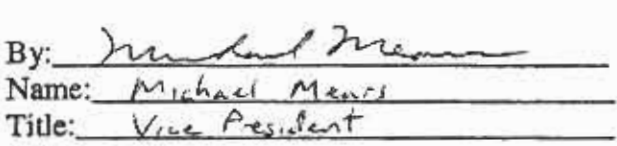 By: Michael Mears
Name: Michael Mears
Title: Vice President